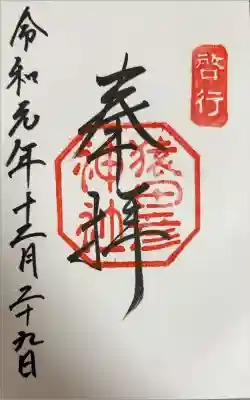 啓行
奉拝
猿田彦
神社
令和元年十二月二十九日